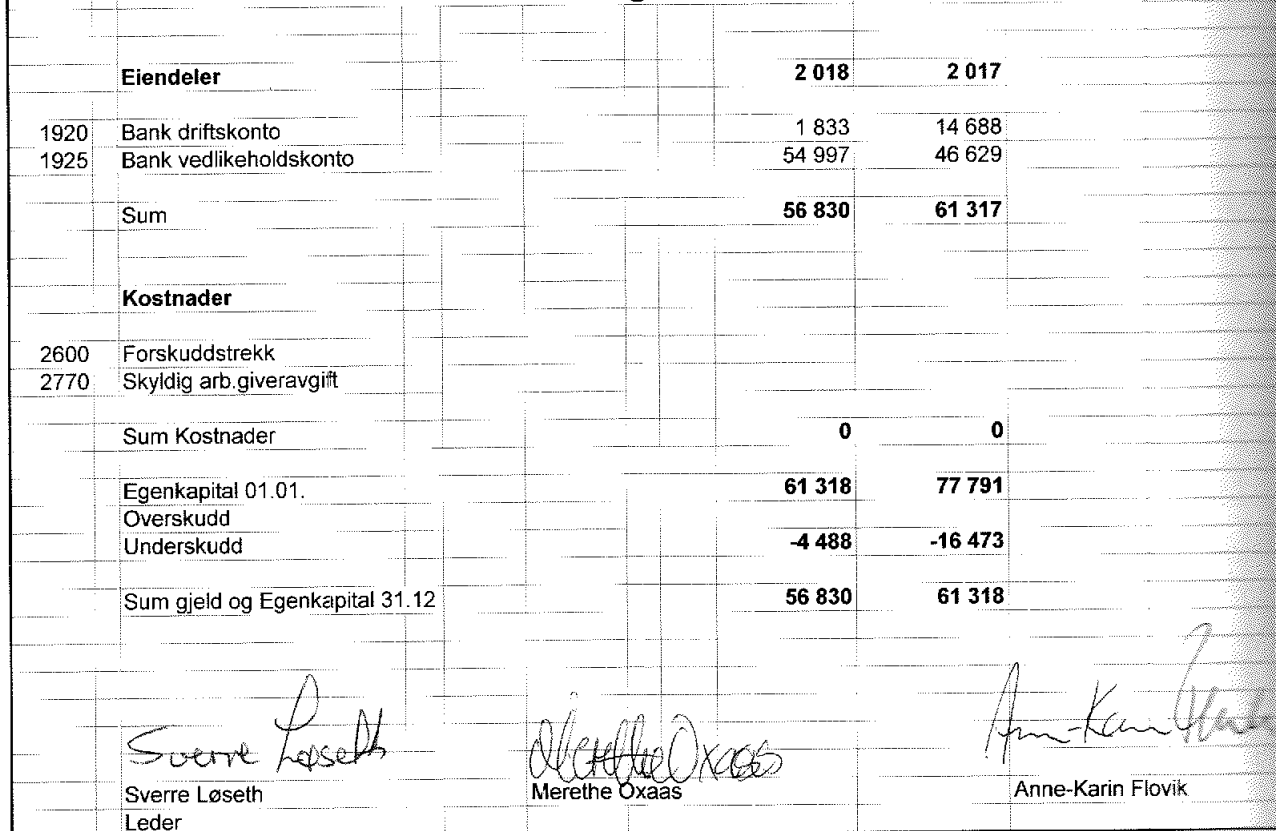 Eiendeler 2 018 2 017
1920 Bank driftskonto 1 833 14 688
1925 Bank vedlikeholdskonto 54 997 46 629
Sum 56 830 61 317
Kostnader
2600 Forskuddstrekk
2770 Skyldig arb.giveravgift
Sum Kostnader 0 0
Egenkapital 01.01. 61 318 77 791
Overskudd
Underskudd -4 488 -16 473
Sum gjeld og Egenkapital 31.12 56 830 61 318
Sverre Løseth Merethe Oxaas Ann-Karin
Sverre Løseth Merethe Oxaas Anne-Karin Flovik
Leder